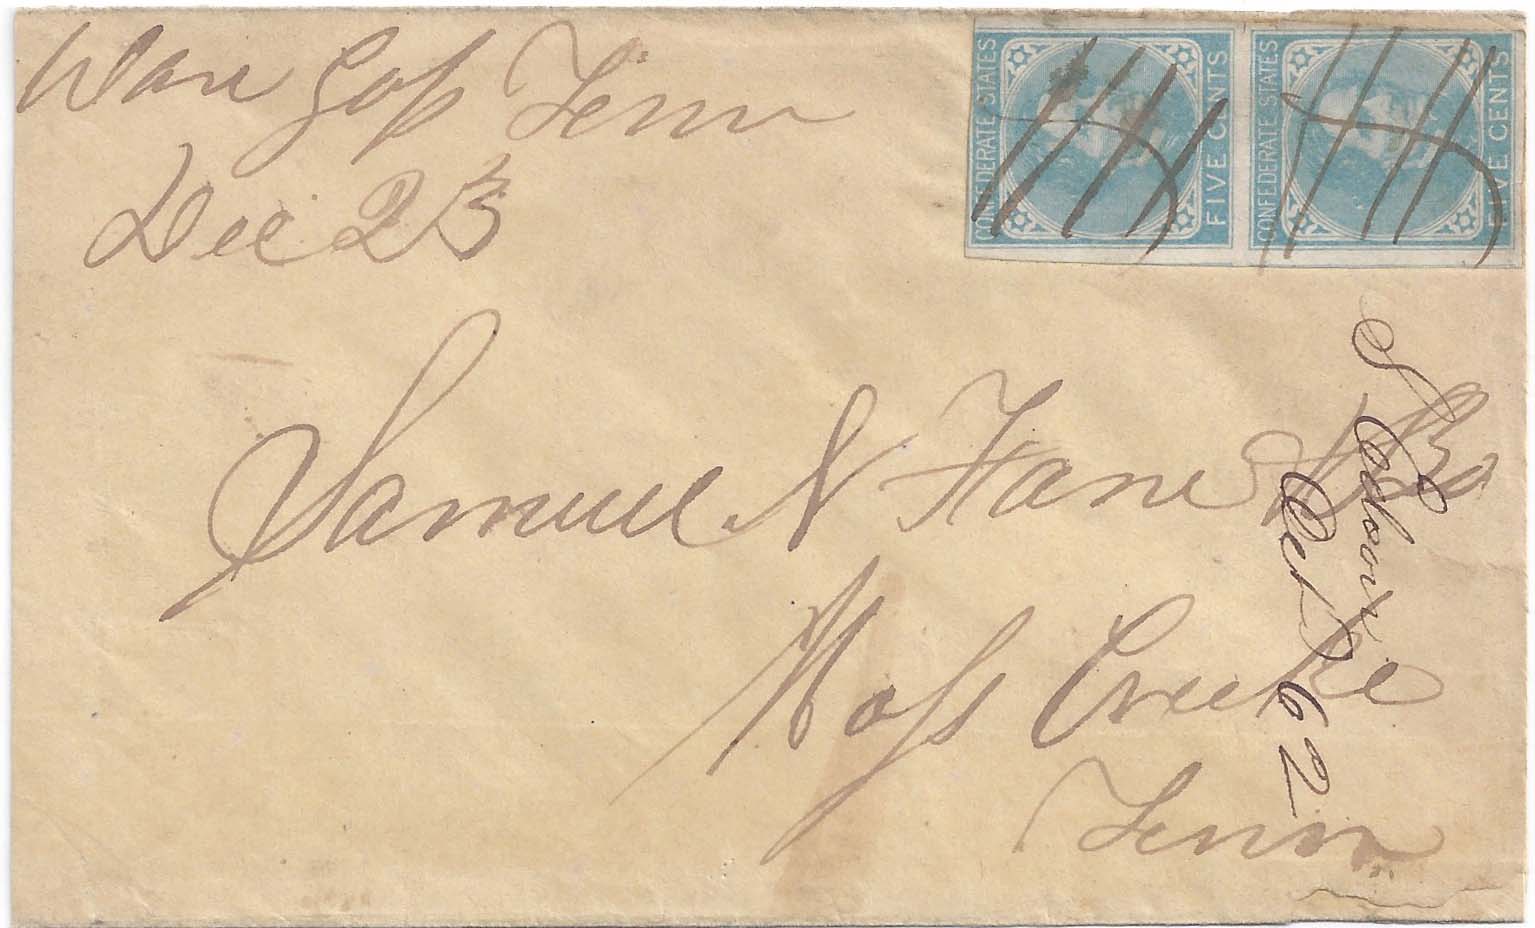 War Gap Tenn
Dec 23
CONFEDERATE STATES
FIVE CENTS
CONFEDERATE STATES
FIVE CENTS
Samuel N Fane & Bo
Mofs Creeke
Tenn
Dec 62